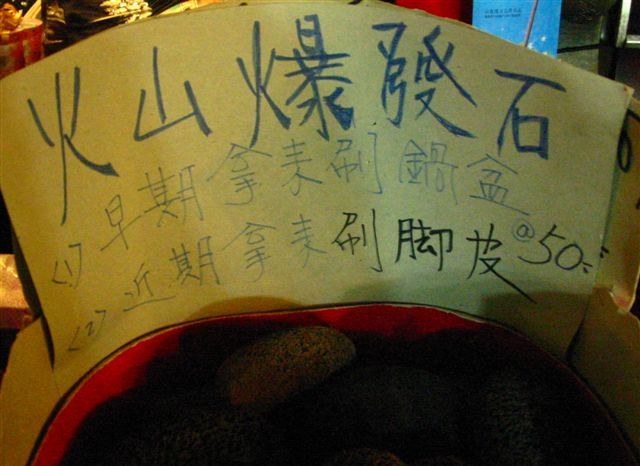 火山爆發石
(1)早期拿来刷鍋盆
(2)近期拿来刷脚皮@50元